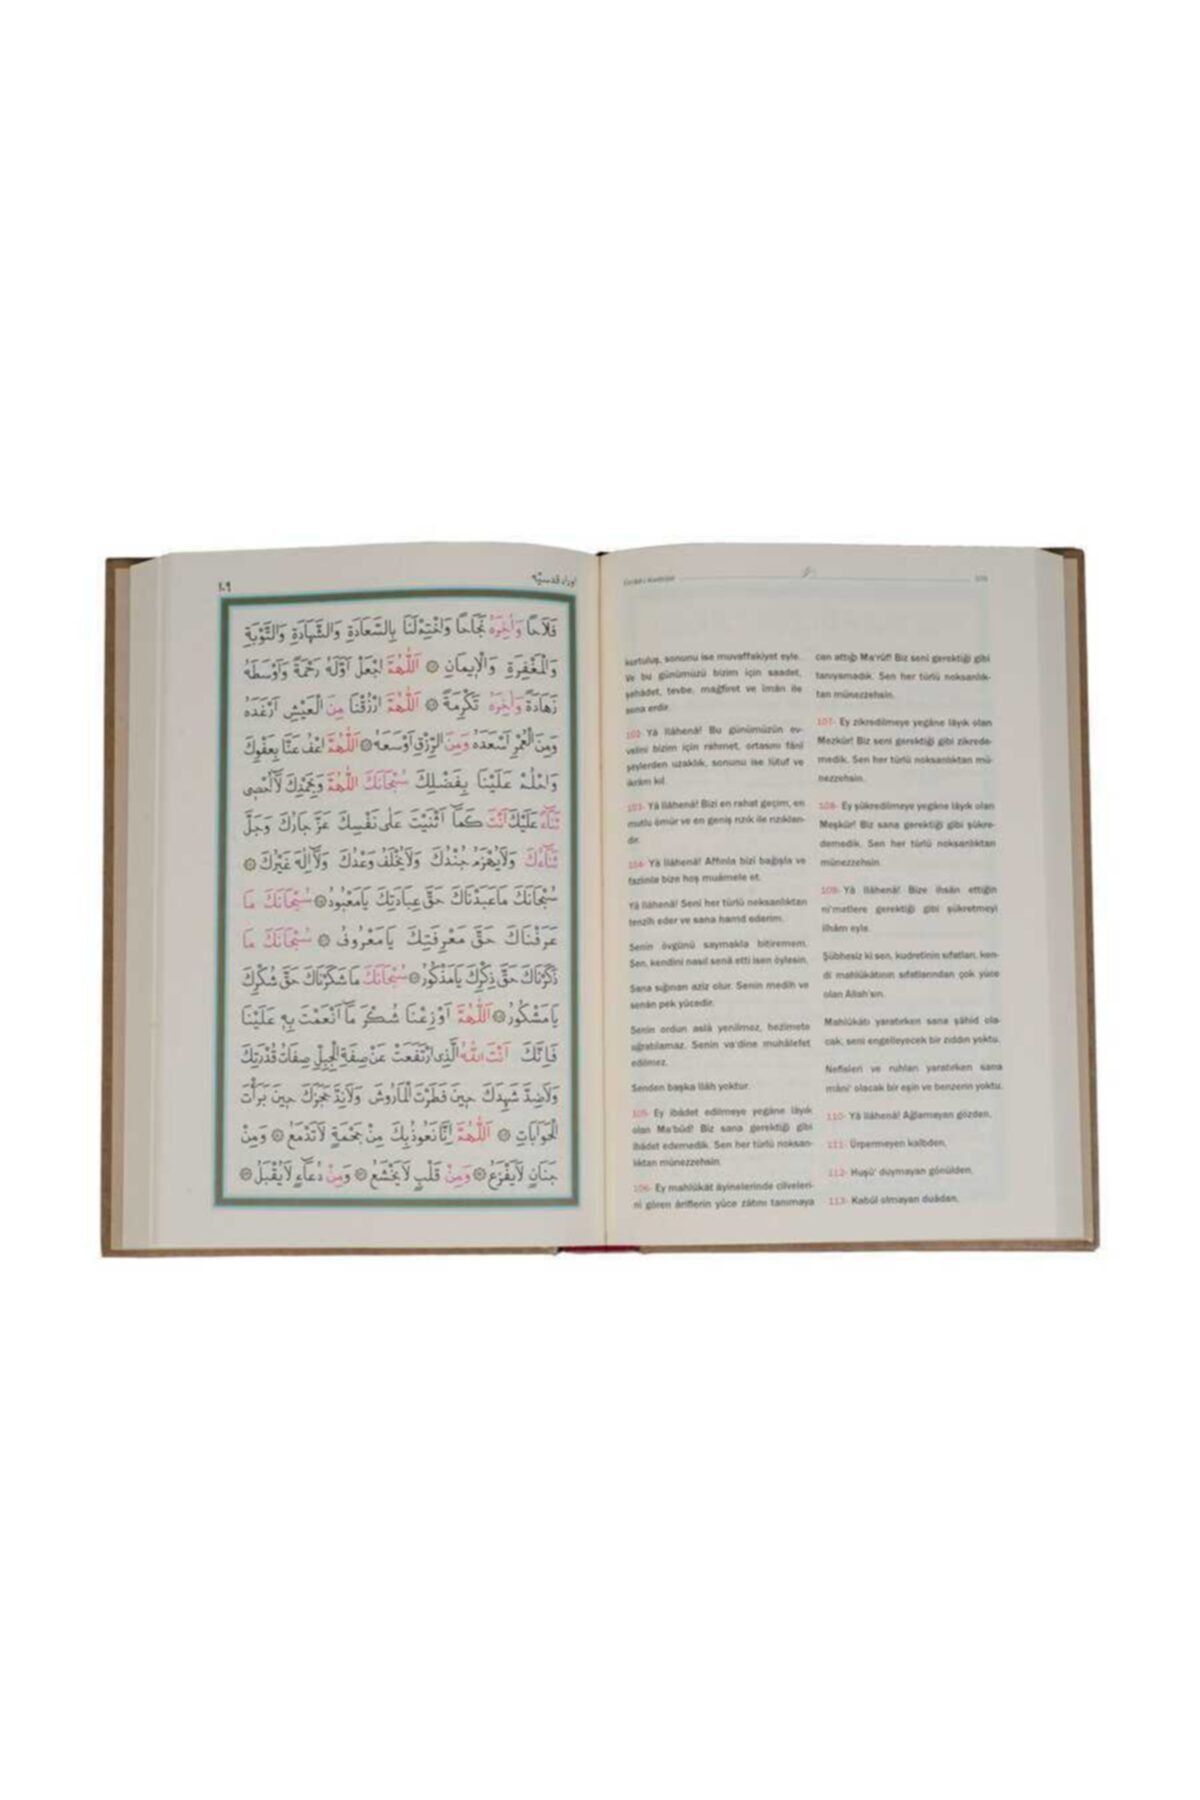 ١٠٩ اوراد قدسيّه
فَلَاحًا وَاٰخِرَهُ نَجَاحًا وَاخْتِمْ لَنَا بِالسَّعَادَةِ وَالشَّهَادَةِ وَالتَّوْبَةِ
وَالْمَغْفِرَةِ وَالْاِيمَانِ ۞ اَللّٰهُمَّ اجْعَلْ اَوَّلَهُ رَحْمَةً وَاَوْسَطَهُ
زَهَادَةً وَاٰخِرَهُ تَكْرِمَةً ۞ اَللّٰهُمَّ ارْزُقْنَا مِنَ الْعَيْشِ اَرْغَدَهُ
وَمِنَ الْعُمْرِ اَسْعَدَهُ وَمِنَ الرِّزْقِ اَوْسَعَهُ ۞ اَللّٰهُمَّ اعْفُ عَنَّا بِعَفْوِكَ
وَاحْلُمْ عَلَيْنَا بِفَضْلِكَ سُبْحَانَكَ اللّٰهُمَّ وَبِحَمْدِكَ لَٓا اُحْصِي
ثَنَٓاءً عَلَيْكَ اَنْتَ كَمَٓا اَثْنَيْتَ عَلٰى نَفْسِكَ عَزَّ جَارُكَ وَجَلَّ
ثَنَٓاؤُكَ وَلَا يُهْزَمُ جُنْدُكَ وَلَا يُخْلَفُ وَعْدُكَ وَلَٓا اِلٰهَ غَيْرُكَ ۞
سُبْحَانَكَ مَا عَبَدْنَاكَ حَقَّ عِبَادَتِكَ يَا مَعْبُودُ ۞ سُبْحَانَكَ مَا
عَرَفْنَاكَ حَقَّ مَعْرِفَتِكَ يَا مَعْرُوفُ ۞ سُبْحَانَكَ مَا
ذَكَرْنَاكَ حَقَّ ذِكْرِكَ يَا مَذْكُورُ ۞ سُبْحَانَكَ مَا شَكَرْنَاكَ حَقَّ شُكْرِكَ
يَا مَشْكُورُ ۞ اَللّٰهُمَّ اَوْزِعْنَا شُكْرَ مَٓا اَنْعَمْتَ بِهِ عَلَيْنَا
فَاِنَّكَ اَنْتَ اللّٰهُ الَّذِي ارْتَفَعْتَ عَنْ صِفَةِ الْجِبِلِّ صِفَاتُ قُدْرَتِكَ
وَلَا ضِدَّ شَهِدَكَ حِينَ فَطَرْتَ الْمَارُوشَ وَلَا نِدَّ حَجَزَكَ حِينَ بَرَأْتَ
الْحَوَابَاتِ ۞ اَللّٰهُمَّ اِنَّا نَعُوذُ بِكَ مِنْ جَحْمَةٍ لَا تَدْمَعُ ۞ وَمِنْ
جَنَانٍ لَا يَفْزَعُ ۞ وَمِنْ قَلْبٍ لَا يَخْشَعُ ۞ وَمِنْ دُعَٓاءٍ لَا يُقْبَلُ ۞
109
kurtuluş, sonunu ise muvaffakiyet eyle.
Ve bu günümüzü bizim için saadet,
şehâdet, tevbe, mağfiret ve îmân ile
sona erdir.
102- Yâ İlâhenâ! Bu günümüzün ev-
velini bizim için rahmet, ortasını fânî
şeylerden uzaklık, sonunu ise lütuf ve
ikrâm kıl.
103- Yâ İlâhenâ! Bizi en rahat geçim, en
mutlu ömür ve en geniş rızık ile rızıklan-
dır.
104- Yâ İlâhenâ! Affınla bizi bağışla ve
fazlınla bize hoş muâmele et.
Yâ İlâhenâ! Seni her türlü noksanlıktan
tenzîh eder ve sana hamd ederim.
Senin övgünü saymakla bitiremem.
Sen, kendini nasıl senâ etti isen öylesin.
Sana sığınan azîz olur. Senin medih ve
senân pek yücedir.
Senin ordun aslâ yenilmez, hezimete
uğratılamaz. Senin va'dine muhâlefet
edilmez.
Senden başka ilâh yoktur.
105- Ey ibâdet edilmeye yegâne lâyık
olan Ma'bûd! Biz sana gerektiği gibi
ibâdet edemedik. Sen her türlü noksan-
lıktan münezzehsin.
106- Ey mahlûkât âyinelerinde cilveleri-
ni gören âriflerin yüce zâtını tanımaya
can attığı Ma'rûf! Biz seni gerektiği gibi
tanıyamadık. Sen her türlü noksanlık-
tan münezzehsin.
107- Ey zikredilmeye yegâne lâyık olan
Mezkûr! Biz seni gerektiği gibi zikrede-
medik. Sen her türlü noksanlıktan mü-
nezzehsin.
108- Ey şükredilmeye yegâne lâyık olan
Meşkûr! Biz sana gerektiği gibi şükre-
demedik. Sen her türlü noksanlıktan
münezzehsin.
109- Yâ İlâhenâ! Bize ihsân ettiğin
ni'metlere gerektiği gibi şükretmeyi
ilhâm eyle.
Şübhesiz ki sen, kudretinin sıfatları, ken-
di mahlûkâtının sıfatlarından çok yüce
olan Allah'sın.
Mahlûkâtı yaratırken sana şâhid ola-
cak, seni engelleyecek bir zıddın yoktu.
Nefisleri ve ruhları yaratırken sana
mâni' olacak bir eşin ve benzerin yoktu.
110- Yâ İlâhenâ! Ağlamayan gözden,
111- Ürpermeyen kalbden,
112- Huşû' duymayan gönülden,
113- Kabûl olmayan duâdan,